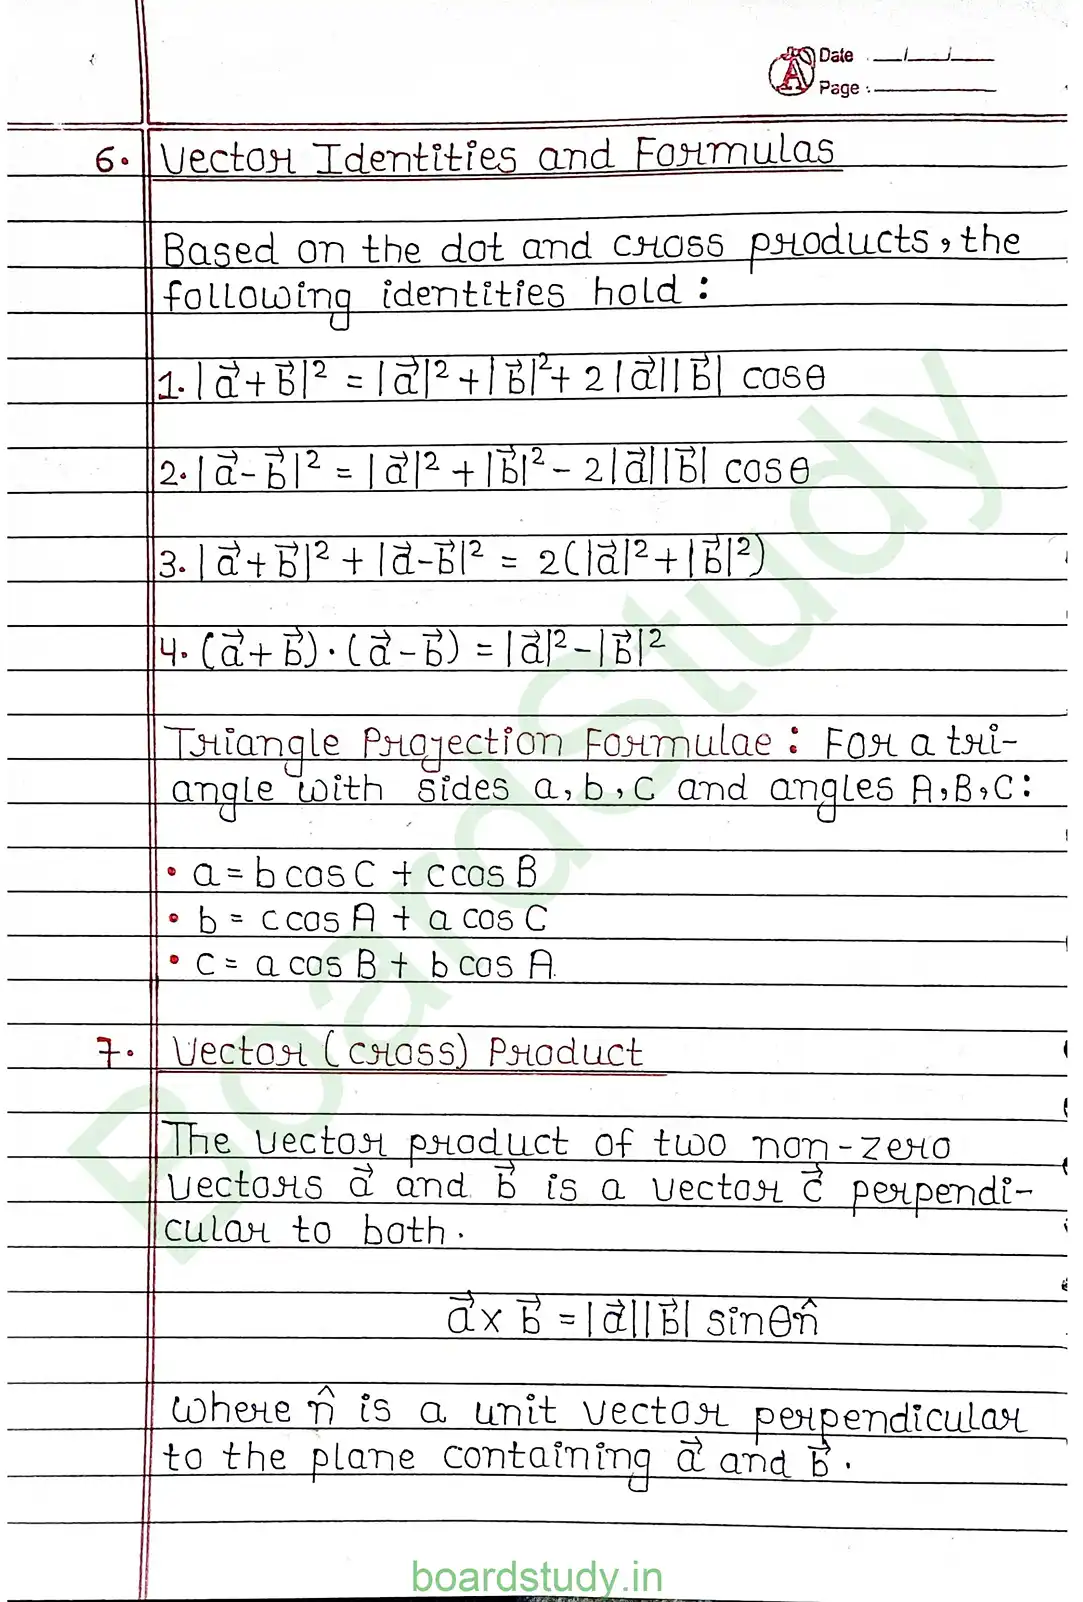 Date : __/__/__
Page : ______
6. Vector Identities and Formulas
Based on the dot and cross products, the
following identities hold :
1. |a⃗ + b⃗|² = |a⃗|² + |b⃗|² + 2|a⃗||b⃗| cosθ
2. |a⃗ - b⃗|² = |a⃗|² + |b⃗|² - 2|a⃗||b⃗| cosθ
3. |a⃗ + b⃗|² + |a⃗ - b⃗|² = 2(|a⃗|² + |b⃗|²)
4. (a⃗ + b⃗) · (a⃗ - b⃗) = |a⃗|² - |b⃗|²
Triangle Projection Formulae : For a tri-
angle with sides a, b, c and angles A, B, C :
• a = b cos C + c cos B
• b = c cos A + a cos C
• c = a cos B + b cos A.
7. Vector (cross) Product
The vector product of two non-zero
vectors a⃗ and b⃗ is a vector c⃗ perpendi-
cular to both.
a⃗ x b⃗ = |a⃗||b⃗| sinθn̂
where n̂ is a unit vector perpendicular
to the plane containing a⃗ and b⃗.
BoardStudy
boardstudy.in